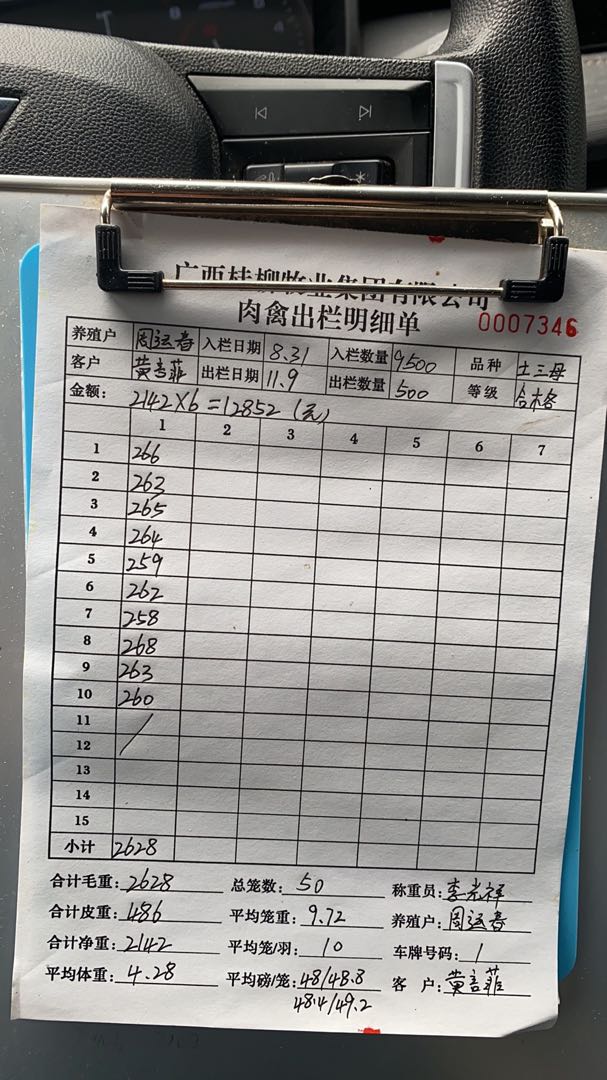 广西桂柳牧业集团有限公司
肉禽出栏明细单 0007346
养殖户 周运春 入栏日期 8.31 入栏数量 9500 品种 土三母
客户 黄言菲 出栏日期 11.9 出栏数量 500 等级 合格
金额: 2142×6=12852(元)
1 2 3 4 5 6 7
1 266
2 263
3 265
4 264
5 259
6 262
7 258
8 268
9 263
10 260
11
12
13
14
15
小计 2628
合计毛重: 2628 总笼数: 50 称重员: 李光祥
合计皮重: 486 平均笼重: 9.72 养殖户: 周运春
合计净重: 2142 平均笼/羽: 10 车牌号码: 1
平均体重: 4.28 平均磅/笼: 48/48.8 客户: 黄言菲
48.4/49.2